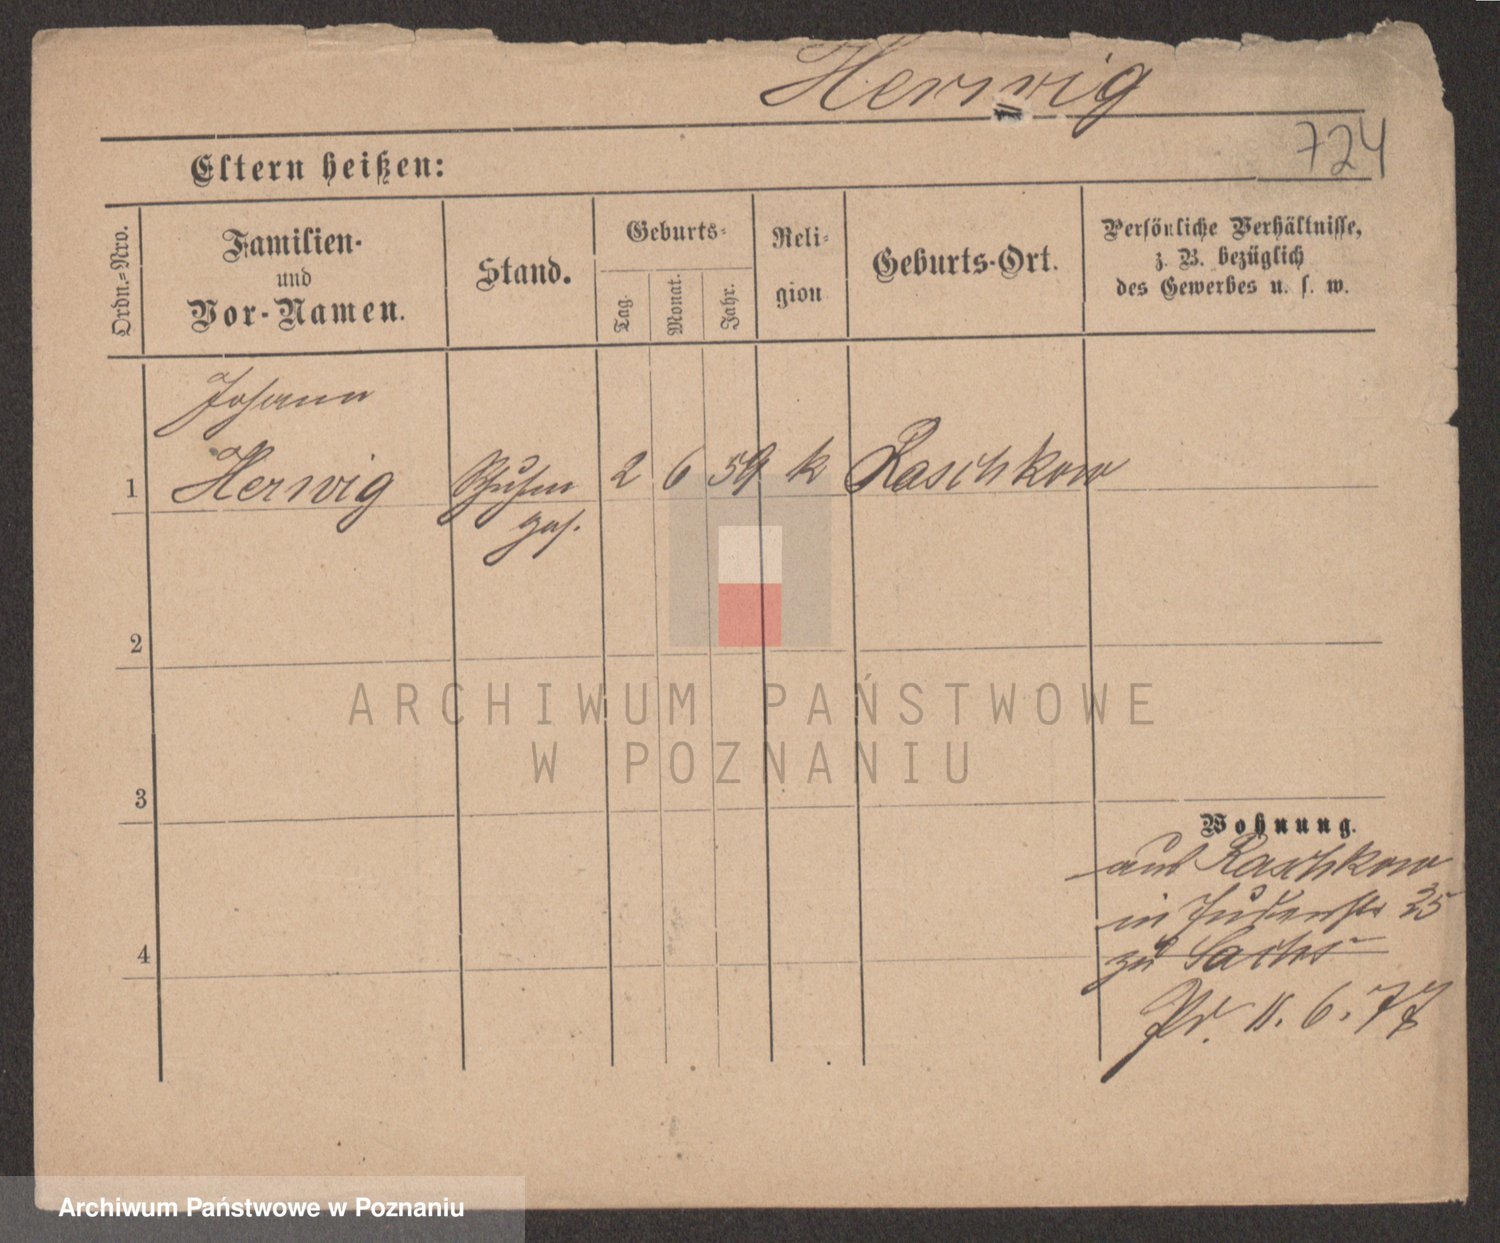 Herwig
724
Eltern heißen:
Ordn.=Nro.
Familien-
und
Vor-Namen.
Stand.
Geburts-
Tag.
Monat.
Jahr.
Reli-
gion
Geburts-Ort.
Persönliche Verhältnisse,
z. B. bezüglich
des Gewerbes u. s. w.
Johann
1 Herwig Schuhm 2 6 59 k Raschkow
ges.
2
3
4
Wohnung.
aus Raschkow
in Judenstr 25
zu Sachs
Pr. 11. 6. 77
ARCHIWUM PAŃSTWOWE
W POZNANIU
Archiwum Państwowe w Poznaniu